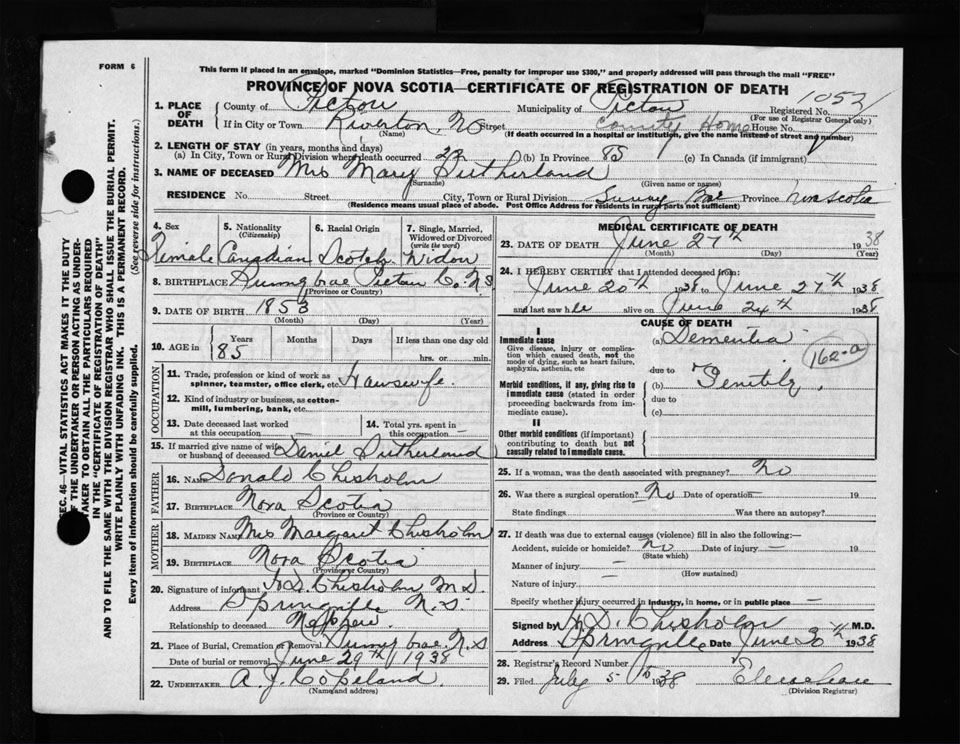 FORM 6
This form if placed in an envelope, marked "Dominion Statistics—Free, penalty for improper use $300," and properly addressed will pass through the mail "FREE"
PROVINCE OF NOVA SCOTIA—CERTIFICATE OF REGISTRATION OF DEATH
SEC. 46—VITAL STATISTICS ACT MAKES IT THE DUTY
OF THE UNDERTAKER OR PERSON ACTING AS UNDER-
TAKER TO OBTAIN ALL THE PARTICULARS REQUIRED
IN THE "CERTIFICATE OF REGISTRATION OF DEATH"
AND TO FILE THE SAME WITH THE DIVISION REGISTRAR WHO SHALL ISSUE THE BURIAL PERMIT.
WRITE PLAINLY WITH UNFADING INK. THIS IS A PERMANENT RECORD.
Every item of information should be carefully supplied. (See reverse side for instructions.)
1. PLACE OF DEATH County of Pictou Municipality of Pictou Registered No. 1052
(For use of Registrar General only)
If in City or Town Riverton, NS Street County Home House No.
(Name) (If death occurred in a hospital or institution, give the name instead of street and number)
2. LENGTH OF STAY (in years, months and days)
(a) In City, Town or Rural Division where death occurred (b) In Province 85 (c) In Canada (if immigrant)
3. NAME OF DECEASED Mrs Mary Sutherland
(Surname) (Given name or names)
RESIDENCE No. Street City, Town or Rural Division Sunny Brae Province Nova Scotia
(Residence means usual place of abode. Post Office Address for residents in rural parts not sufficient)
4. Sex 5. Nationality (Citizenship) 6. Racial Origin 7. Single, Married, Widowed or Divorced (write the word)
Female Canadian Scotch Widow
8. BIRTHPLACE Sunny brae Pictou Co. N.S
(Province or Country)
9. DATE OF BIRTH 1853
(Month) (Day) (Year)
10. AGE in Years Months Days If less than one day old
85 hrs. or min.
OCCUPATION
11. Trade, profession or kind of work as spinner, teamster, office clerk, etc. Housewife.
12. Kind of industry or business, as cotton-mill, lumbering, bank, etc.
13. Date deceased last worked at this occupation — 14. Total yrs. spent in this occupation —
15. If married give name of wife or husband of deceased Daniel Sutherland
FATHER
16. NAME Donald Chisholm
17. BIRTHPLACE Nova Scotia
(Province or Country)
MOTHER
18. MAIDEN NAME Mrs Margaret Chisholm
19. BIRTHPLACE Nova Scotia
(Province or Country)
20. Signature of informant H.D. Chisholm M.D.
Address Springville N.S.
Relationship to deceased Nephew.
21. Place of Burial, Cremation or Removal Sunny brae N.S
Date of burial or removal June 29th 1938
22. UNDERTAKER A. J. Copeland
(Name and address)
MEDICAL CERTIFICATE OF DEATH
23. DATE OF DEATH June 27th 1938
(Month) (Day) (Year)
24. I HEREBY CERTIFY that I attended deceased from:
June 20th 1938 to June 27th 1938
and last saw h alive on June 24th 1938
CAUSE OF DEATH
I
Immediate cause (a) Dementia
Give disease, injury or complication which caused death, not the mode of dying, such as heart failure, asphyxia, asthenia, etc
162-a
due to
Morbid conditions, if any, giving rise to immediate cause (stated in order proceeding backwards from immediate cause). (b) Senility,
due to
(c)
II
Other morbid conditions (if important) contributing to death but not causally related to immediate cause.
25. If a woman, was the death associated with pregnancy? No
26. Was there a surgical operation? No Date of operation — 19
State findings Was there an autopsy?
27. If death was due to external causes (violence) fill in also the following:—
Accident, suicide or homicide? no Date of injury — 19
(State which)
Manner of injury —
(How sustained)
Nature of injury —
Specify whether injury occurred in industry, in home, or in public place —
Signed by H.D. Chisholm M.D.
Address Springville Date June 30th 1938
28. Registrar's Record Number
29. Filed July 5th 1938
(Division Registrar)